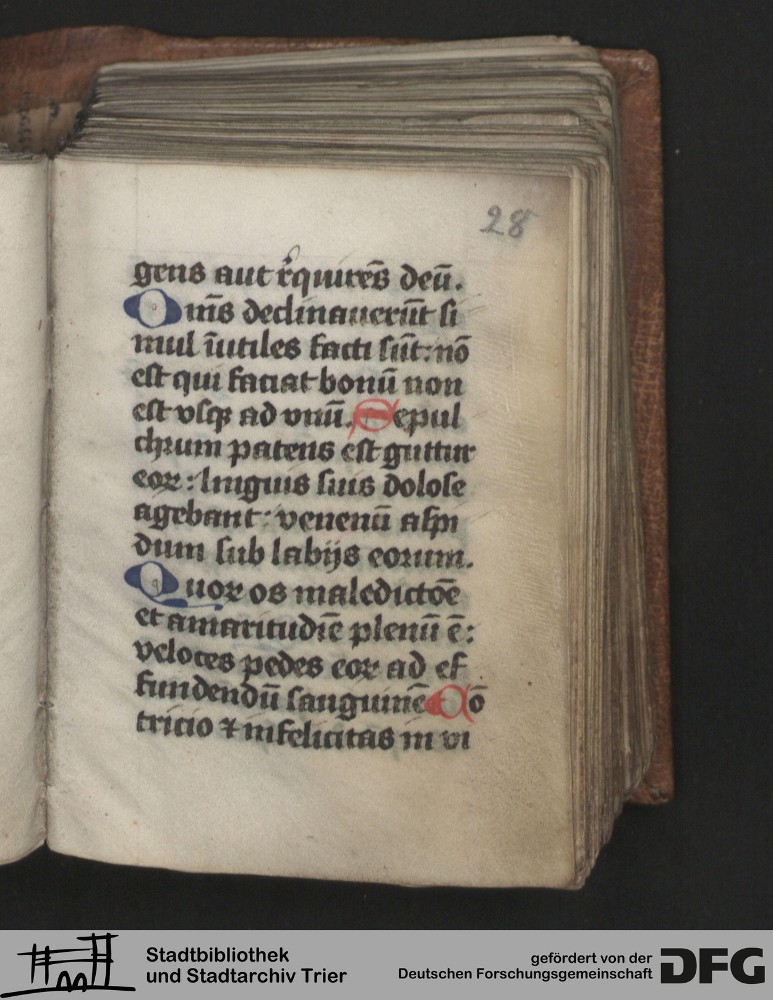 28
gens aut r̄quirēs deū.
Om̄s declinauerūt si
mul īutiles facti sūt: nō
est qui faciat bonū non
est vsqꝫ ad vnū. Sepul
chrum patens est guttur
eoꝝ: linguis suis dolose
agebant: venenū aspi
dum sub labijs eorum.
Quoꝝ os maledictōe
et amaritudīe plenū ē:
veloces pedes eoꝝ ad ef
fundendū sanguinē Cō
tricio ⁊ infelicitas in vi
Stadtbibliothek
und Stadtarchiv Trier
gefördert von der
Deutschen Forschungsgemeinschaft
DFG